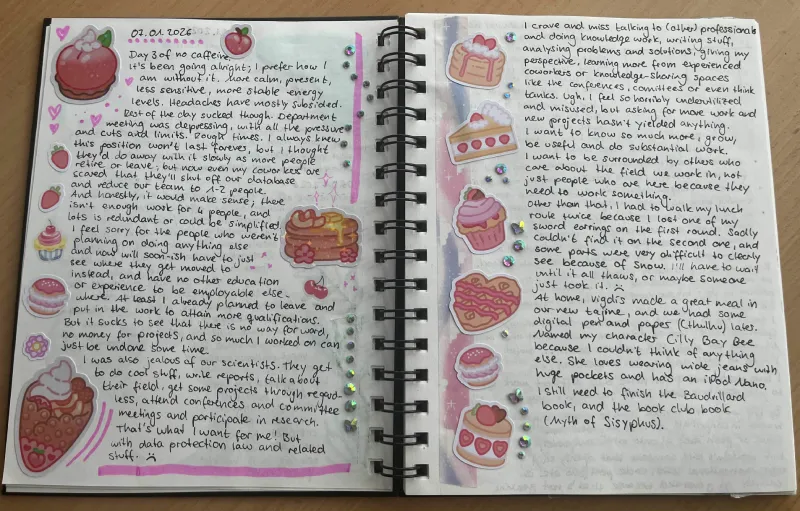 07.01.2026
Day 3 of no caffeine.
It's been going alright; I prefer how I
am without it. More calm, present,
less sensitive, more stable energy
levels. Headaches have mostly subsided.
Rest of the day sucked though. Department
meeting was depressing, with all the pressure
and cuts and limits. Rough times. I always knew
this position won't last forever, but I thought
they'd do away with it slowly as more people
retire or leave; but now even my coworkers are
scared that they'll shut off our database
and reduce our team to 1-2 people.
And honestly, it would make sense; there
isn't enough work for 4 people, and
lots is redundant or could be simplified.
I feel sorry for the people who weren't
planning on doing anything else
and now will soon-ish have to just
see where they get moved to
instead, and have no other education
or experience to be employable else-
where. At least I already planned to leave and
put in the work to attain more qualifications.
But it sucks to see that there is no way forward,
no money for projects, and so much I worked on can
just be undone some time.
I was also jealous of our scientists. They get
to do cool stuff, write reports, talk about
their field, get some projects through regard-
less, attend conferences and committee
meetings and participate in research.
That's what I want for me! But
with data protection law and related
stuff. :(
I crave and miss talking to (other) professionals
and doing knowledge work, writing stuff,
analysing problems and solutions, giving my
perspective, learning more from experienced
coworkers or knowledge-sharing spaces
like the conferences, comittees or even think
tanks. Ugh, I feel so horribly underutilized
and misused, but asking for more work and
new projects hasn't yielded anything.
I want to know so much more, grow,
be useful and do substantial work.
I want to be surrounded by others who
care about the field we work in, not
just people who are here because they
need to work something.
Other than that, I had to walk my lunch
route twice because I lost one of my
sword earrings on the first round. Sadly
couldn't find it on the second one, and
some parts were very difficult to clearly
see because of snow. I'll have to wait
until it all thaws, or maybe someone
just took it. :(
At home, Vigdis made a great meal in
our new tajine, and we had some
digital pen and paper (Cthulhu) later.
Named my character Cilly Bay Bee
because I couldn't think of anything
else. She loves wearing wide jeans with
huge pockets and has an iPod Nano.
I still need to finish the Baudrillard
book, and the book club book
(Myth of Sisyphus).